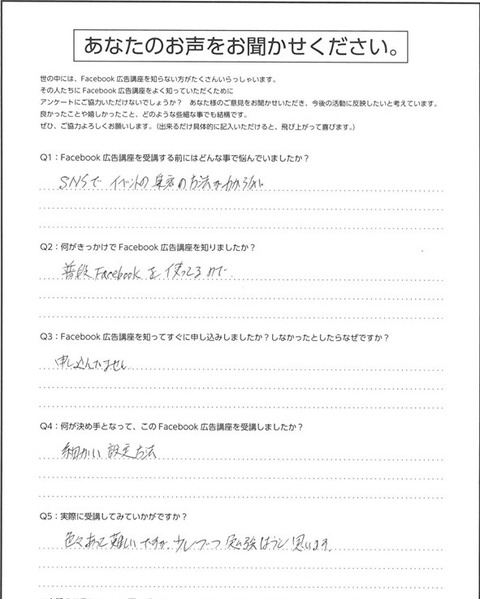 あなたのお声をお聞かせください。
世の中には、Facebook 広告講座を知らない方がたくさんいらっしゃいます。
その人たちに Facebook 広告講座をよく知っていただくために
アンケートにご協力いただけないでしょうか？ あなた様のご意見をお聞かせいただき、今後の活動に反映したいと考えています。
良かったことや嬉しかったこと、どのような些細な事でも結構です。
ぜひ、ご協力よろしくお願いします。（出来るだけ具体的に記入いただけると、飛び上がって喜びます。）
Q1：Facebook 広告講座を受講する前にはどんな事で悩んでいましたか？
SNSで イベントの 集客の方法がわからない
Q2：何がきっかけで Facebook 広告講座を知りましたか？
普段 Facebook を 使ってるので
Q3：Facebook 広告講座を知ってすぐに申し込みしましたか？しなかったとしたらなぜですか？
申し込みました
Q4：何が決め手となって、この Facebook 広告講座を受講しましたか？
細かい 設定方法
Q5：実際に受講してみていかがですか？
色々あって 難しいですが、少しずつ 思います